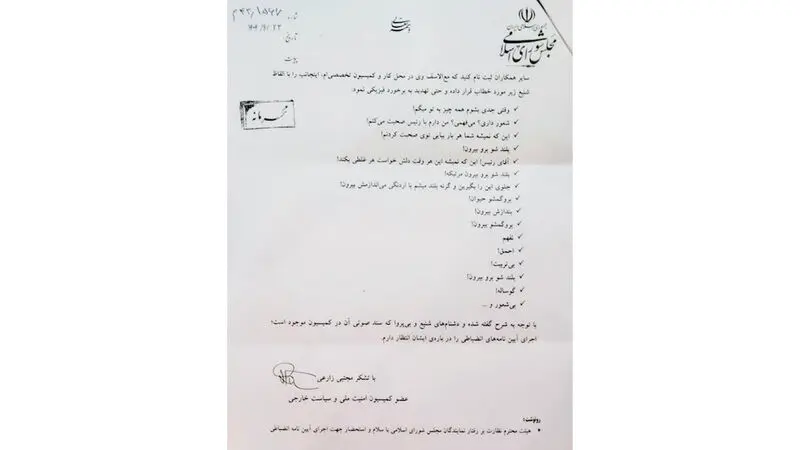 جمهوری اسلامی ایران
مجلس شورای اسلامی
شماره ۱۵۹۷/م۴۳
تاریخ:
پیوست
محرمانه
سایر همکاران ثبت نام کنید که مع‌الاسف وی در محل کار و کمیسیون تخصصی‌ام، اینجانب را با الفاظ
شنیع زیر مورد خطاب قرار داده و حتی تهدید به برخورد فیزیکی نمود:
✓ وقتی جدی بشوم همه چیز به تو میگم!
✓ شعور داری؟ می‌فهمی؟ من دارم با رئیس صحبت می‌کنم!
✓ این که نمیشه شما هر بار بیایی توی صحبت کردنم!
✓ بلند شو برو بیرون!
✓ آقای رئیس! این که نمیشه این هر وقت دلش خواست هر غلطی بکند!
✓ بلند شو برو بیرون مرتیکه!
✓ جلوی این را بگیرین و گرنه بلند میشم با اردنگی می‌اندازمش بیرون!
✓ بروگمشو حیوان!
✓ بندازش بیرون!
✓ بروگمشو بیرون!
✓ نفهم
✓ احمق!
✓ بی‌تربیت!
✓ بلند شو برو بیرون!
✓ گوساله!
✓ بی‌شعور و ...
با توجه به شرح گفته شده و دشنام‌های شنیع و بی‌پروا که سند صوتی آن در کمیسیون موجود است؛
اجرای آیین نامه‌های انضباطی را در باره‌ی ایشان انتظار دارم.
با تشکر مجتبی زارعی
عضو کمیسیون امنیت ملی و سیاست خارجی
رونوشت:
• هیئت محترم نظارت بر رفتار نمایندگان مجلس شورای اسلامی با سلام و استحضار جهت اجرای آیین نامه انضباطی